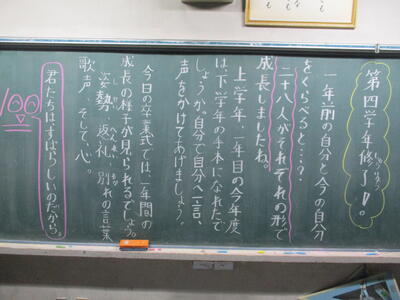 第四学年修了!。
一年前の自分と今の自分
をくらべると…?
二十八人がそれぞれの形で
成長しましたね。
上学年、一年目の今年度
は、下学年の手本になれたで
しょうか。自分で自分へ一言、
声をかけてあげましょう。
今日の卒業式では、一年間の
成長の種子が見られるでしょう。
姿勢、返礼、別れの言葉
歌声、そして、心。
君たちはすばらしいのだから。
100